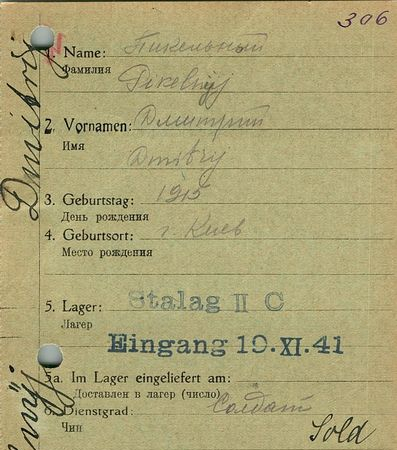 306
1. Name: Пикельный
Фамилия
Pikelnyj
2. Vornamen: Дмитрий
Имя
Dmitrij
3. Geburtstag: 1915
День рождения
4. Geburtsort: г. Киев
Место рождения
5. Lager: Stalag II C
Лагер
Eingang 10.XI.41
5a. Im Lager eingeliefert am:
Доставлен в лагер (число)
6. Dienstgrad: Солдат
Чин
Sold
Dmitrij